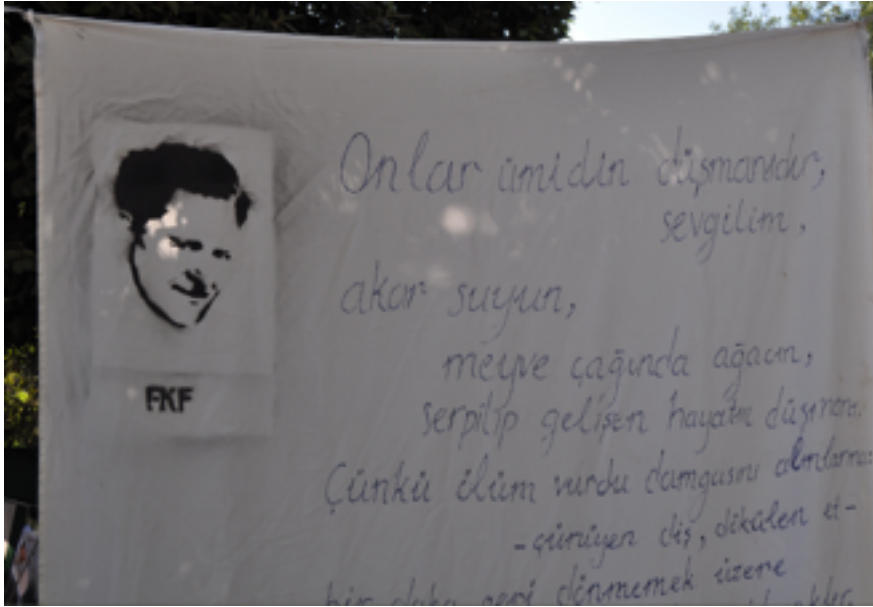 FKF
Onlar ümidin düşmanıdır,
sevgilim,
akar suyun,
meyve çağında ağacın,
serpilip gelişen hayatın
Çünkü ölüm vurdu damgasını
-çürüyen diş, dökülen et-
bir daha geri dönmemek üzere